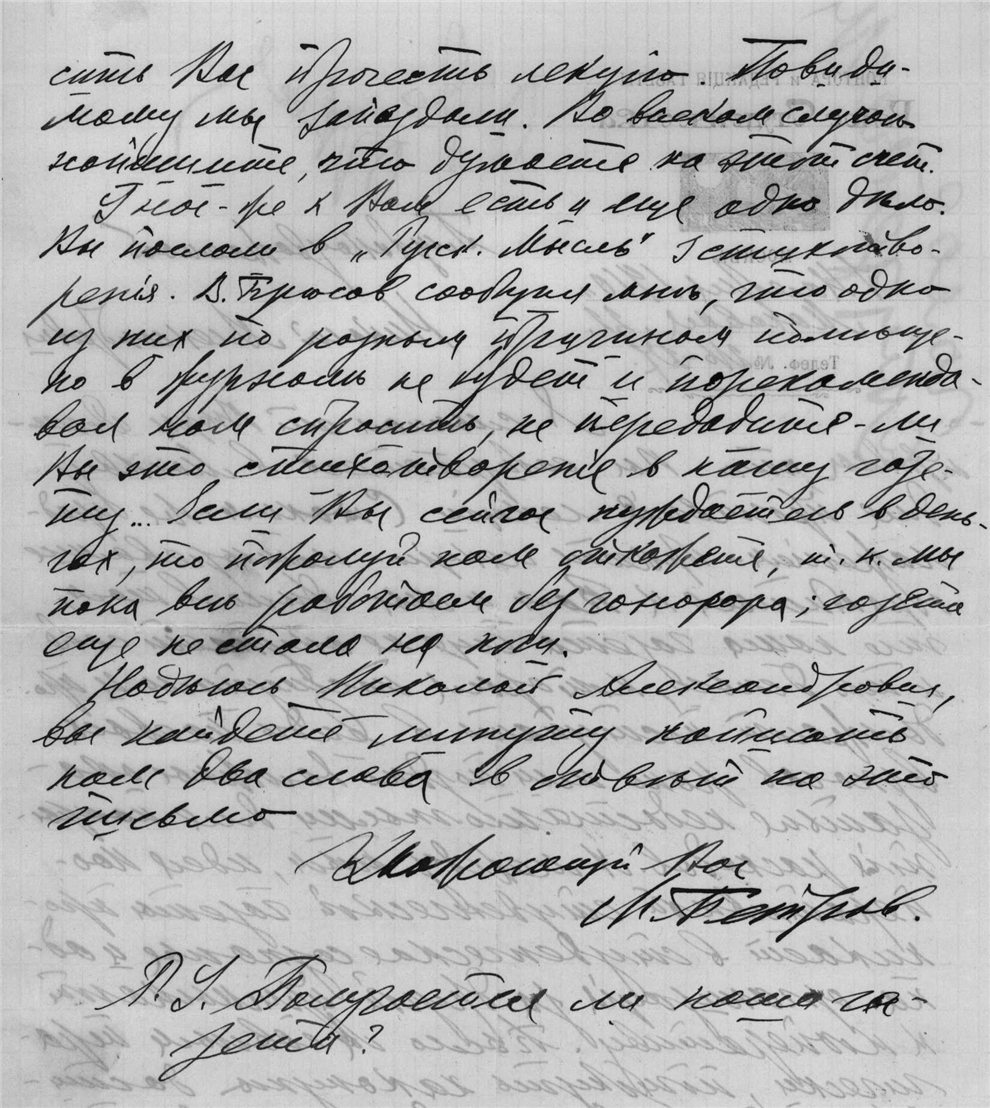 сить Вас прочесть лекцію. Повиди-
мому мы запоздали. Во всяком случаѣ
напишите, что думаете на этот счет.
У нас-же к Вам есть и еще одно дѣло.
Вы послали в „Русск. Мысль" 3 стихотво-
ренія. В. Брюсов сообщил мнѣ, что одно
из них по разным причинам помѣще-
но в журналѣ не будет и порекомендо-
вал нам спросить, не передадите-ли
Вы это стихотвореніе в нашу газе-
ту... Если Вы сейчас нуждаетесь в день-
гах, то пожалуй нам откажете, т. к. мы
пока всѣ работаем без гонорара; газета
еще не стала на ноги.
Надѣюсь Николай Александрович,
вы найдете минутку написать
нам два слова в отвѣт на это
письмо
Уважающий Вас
М. Петров.
P. S. Получается ли наша га-
зета?